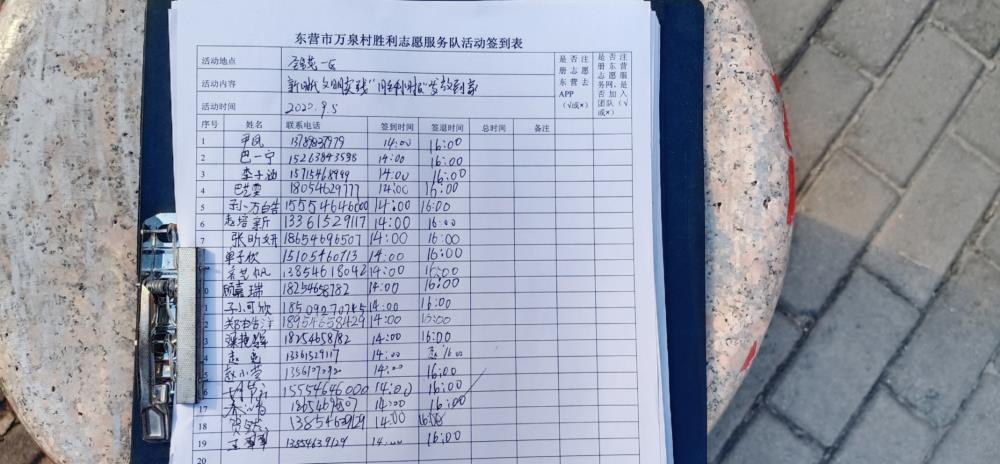 东营市万泉村胜利志愿服务队活动签到表
活动地点 一区 是否注册志愿东营去APP(√或×) 是否注册东营志愿服务网,是否加入团队(√或×)
活动内容 新时代文明实践"胜利小蜜蜂"发放到家
活动时间 2020.9.5
序号 姓名 联系电话 签到时间 签退时间 总时间 备注
1 平凤 13789837979 14:00 16:00
2 巴一宁 15263843598 14:00 16:00
3 李子涵 15715468999 14:00 16:00
4 巴艺雯 18054629777 14:00 16:00
5 15554646000 14:00 16:00
6 赵培新 13361529117 14:00 16:00
7 张昕妍 18654696507 14:00 16:00
单子欣 15105460713 14:00 16:00
13854618042 14:00 16:00
0 顾嘉瑞 18254658782 14:00 16:00
1 孙可欣 14:00 16:00
2 18954658429 14:00 16:00
3 18254658782 14:00 16:00
4 赵 13361529117 14:00 16:00
5 赵小莹 14:00 16:00
6 15554646000 14:00 16:00
17 14:00 16:00
18 13854639129 14:00 16:00
19 王翠翠 13854639129 14:00 16:00
20